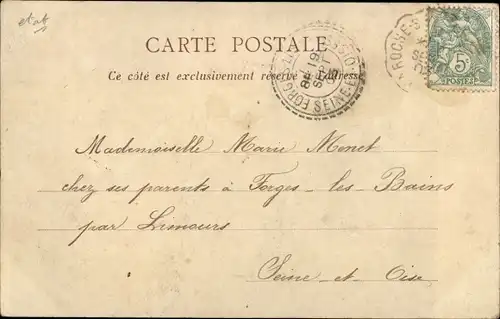 etat
CARTE POSTALE
Ce côté est exclusivement réservé à l'adresse
19
SEPT
03
SEINE-ET-OISE
LAROCHE-S
5c
POSTES
Mademoiselle Marie Menet
chez ses parents à Forges-les-Bains
par Limours
Seine-et-Oise